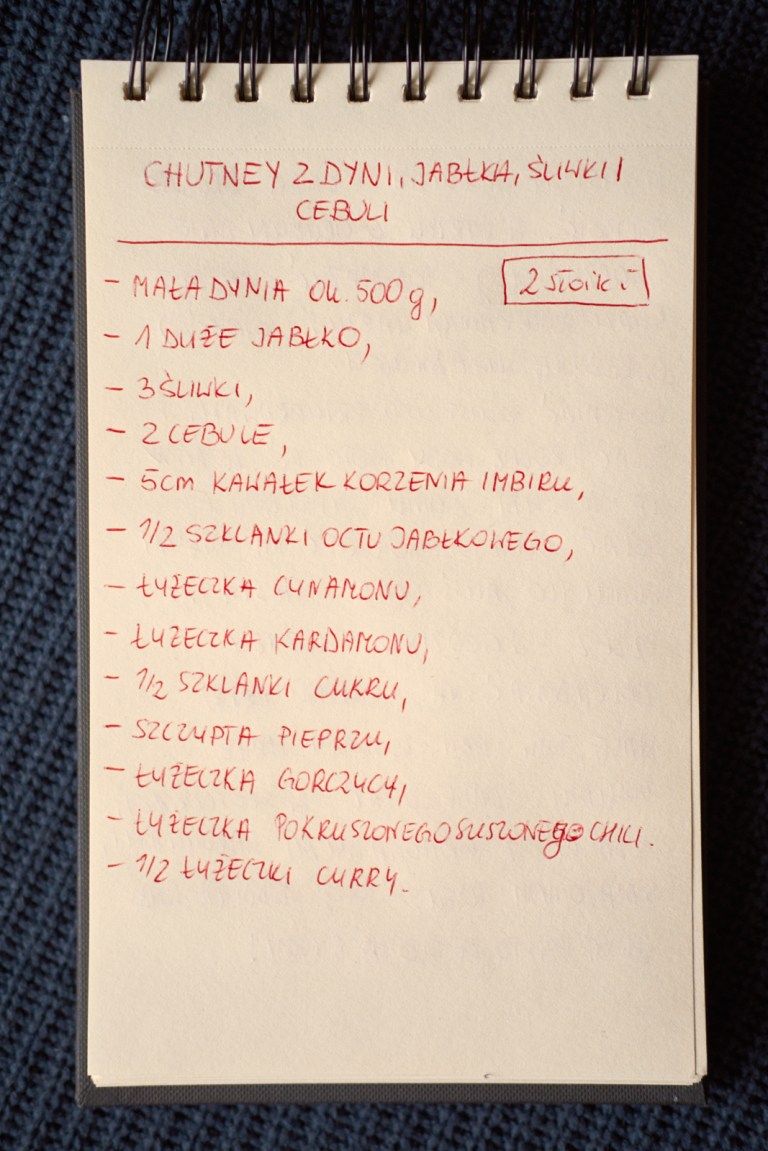 CHUTNEY Z DYNI, JABŁKA, ŚLIWKI I
CEBULI
2 słoiki
- MAŁA DYNIA OK. 500g,
- 1 DUŻE JABŁKO,
- 3 ŚLIWKI,
- 2 CEBULE,
- 5cm KAWAŁEK KORZENIA IMBIRU,
- 1/2 SZKLANKI OCTU JABŁKOWEGO,
- ŁYŻECZKA CYNAMONU,
- ŁYŻECZKA KARDAMONU,
- 1/2 SZKLANKI CUKRU,
- SZCZYPTA PIEPRZU,
- ŁYŻECZKA GORCZYCY,
- ŁYŻECZKA POKRUSZONEGO SUSZONEGO CHILI.
- 1/2 ŁYŻECZKI CURRY.